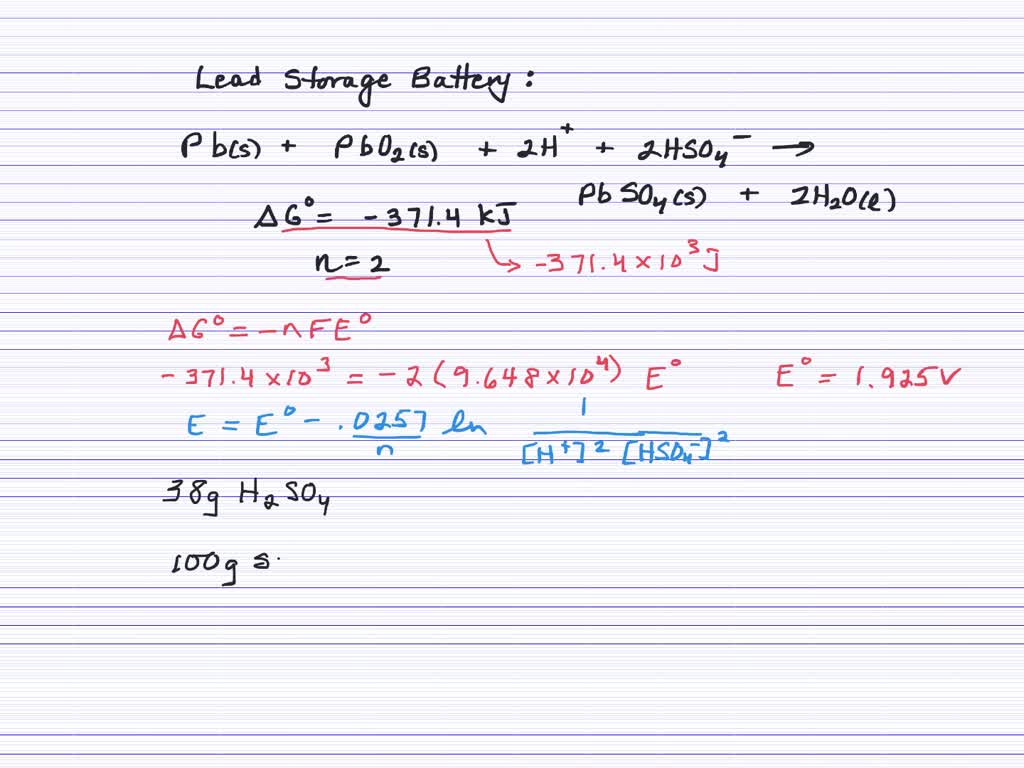 Lead Storage Battery:
Pb(s) + PbO₂(s) + 2H⁺ + 2HSO₄⁻ →
PbSO₄(s) + 2H₂O(l)
ΔG° = -371.4 kJ
n = 2
→ -371.4 × 10³ J
ΔG° = -nFE°
-371.4 × 10³ = -2 (9.648 × 10⁴) E°
E° = 1.925 V
E = E° - .0257/n ln 1/[H⁺]² [HSO₄⁻]²
38g H₂SO₄
100g s